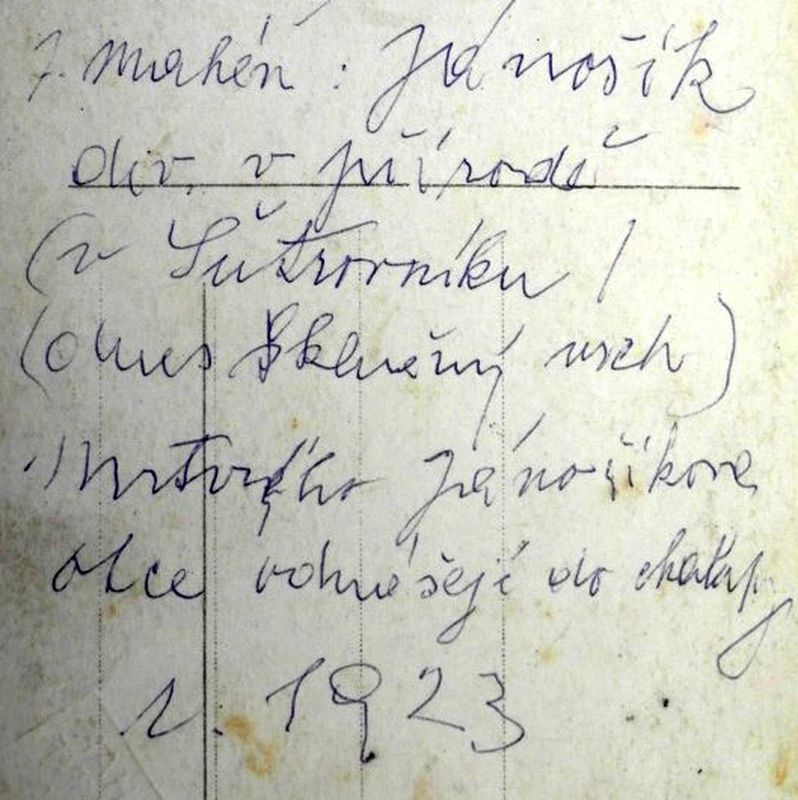 J. Mahén: Jánošík
div. v přírodě
(v Šutrovníku /
(dnes Sklenený vrch)
Mrtvého Jánošíkova
otce odnášejí do chalupy
r. 1923